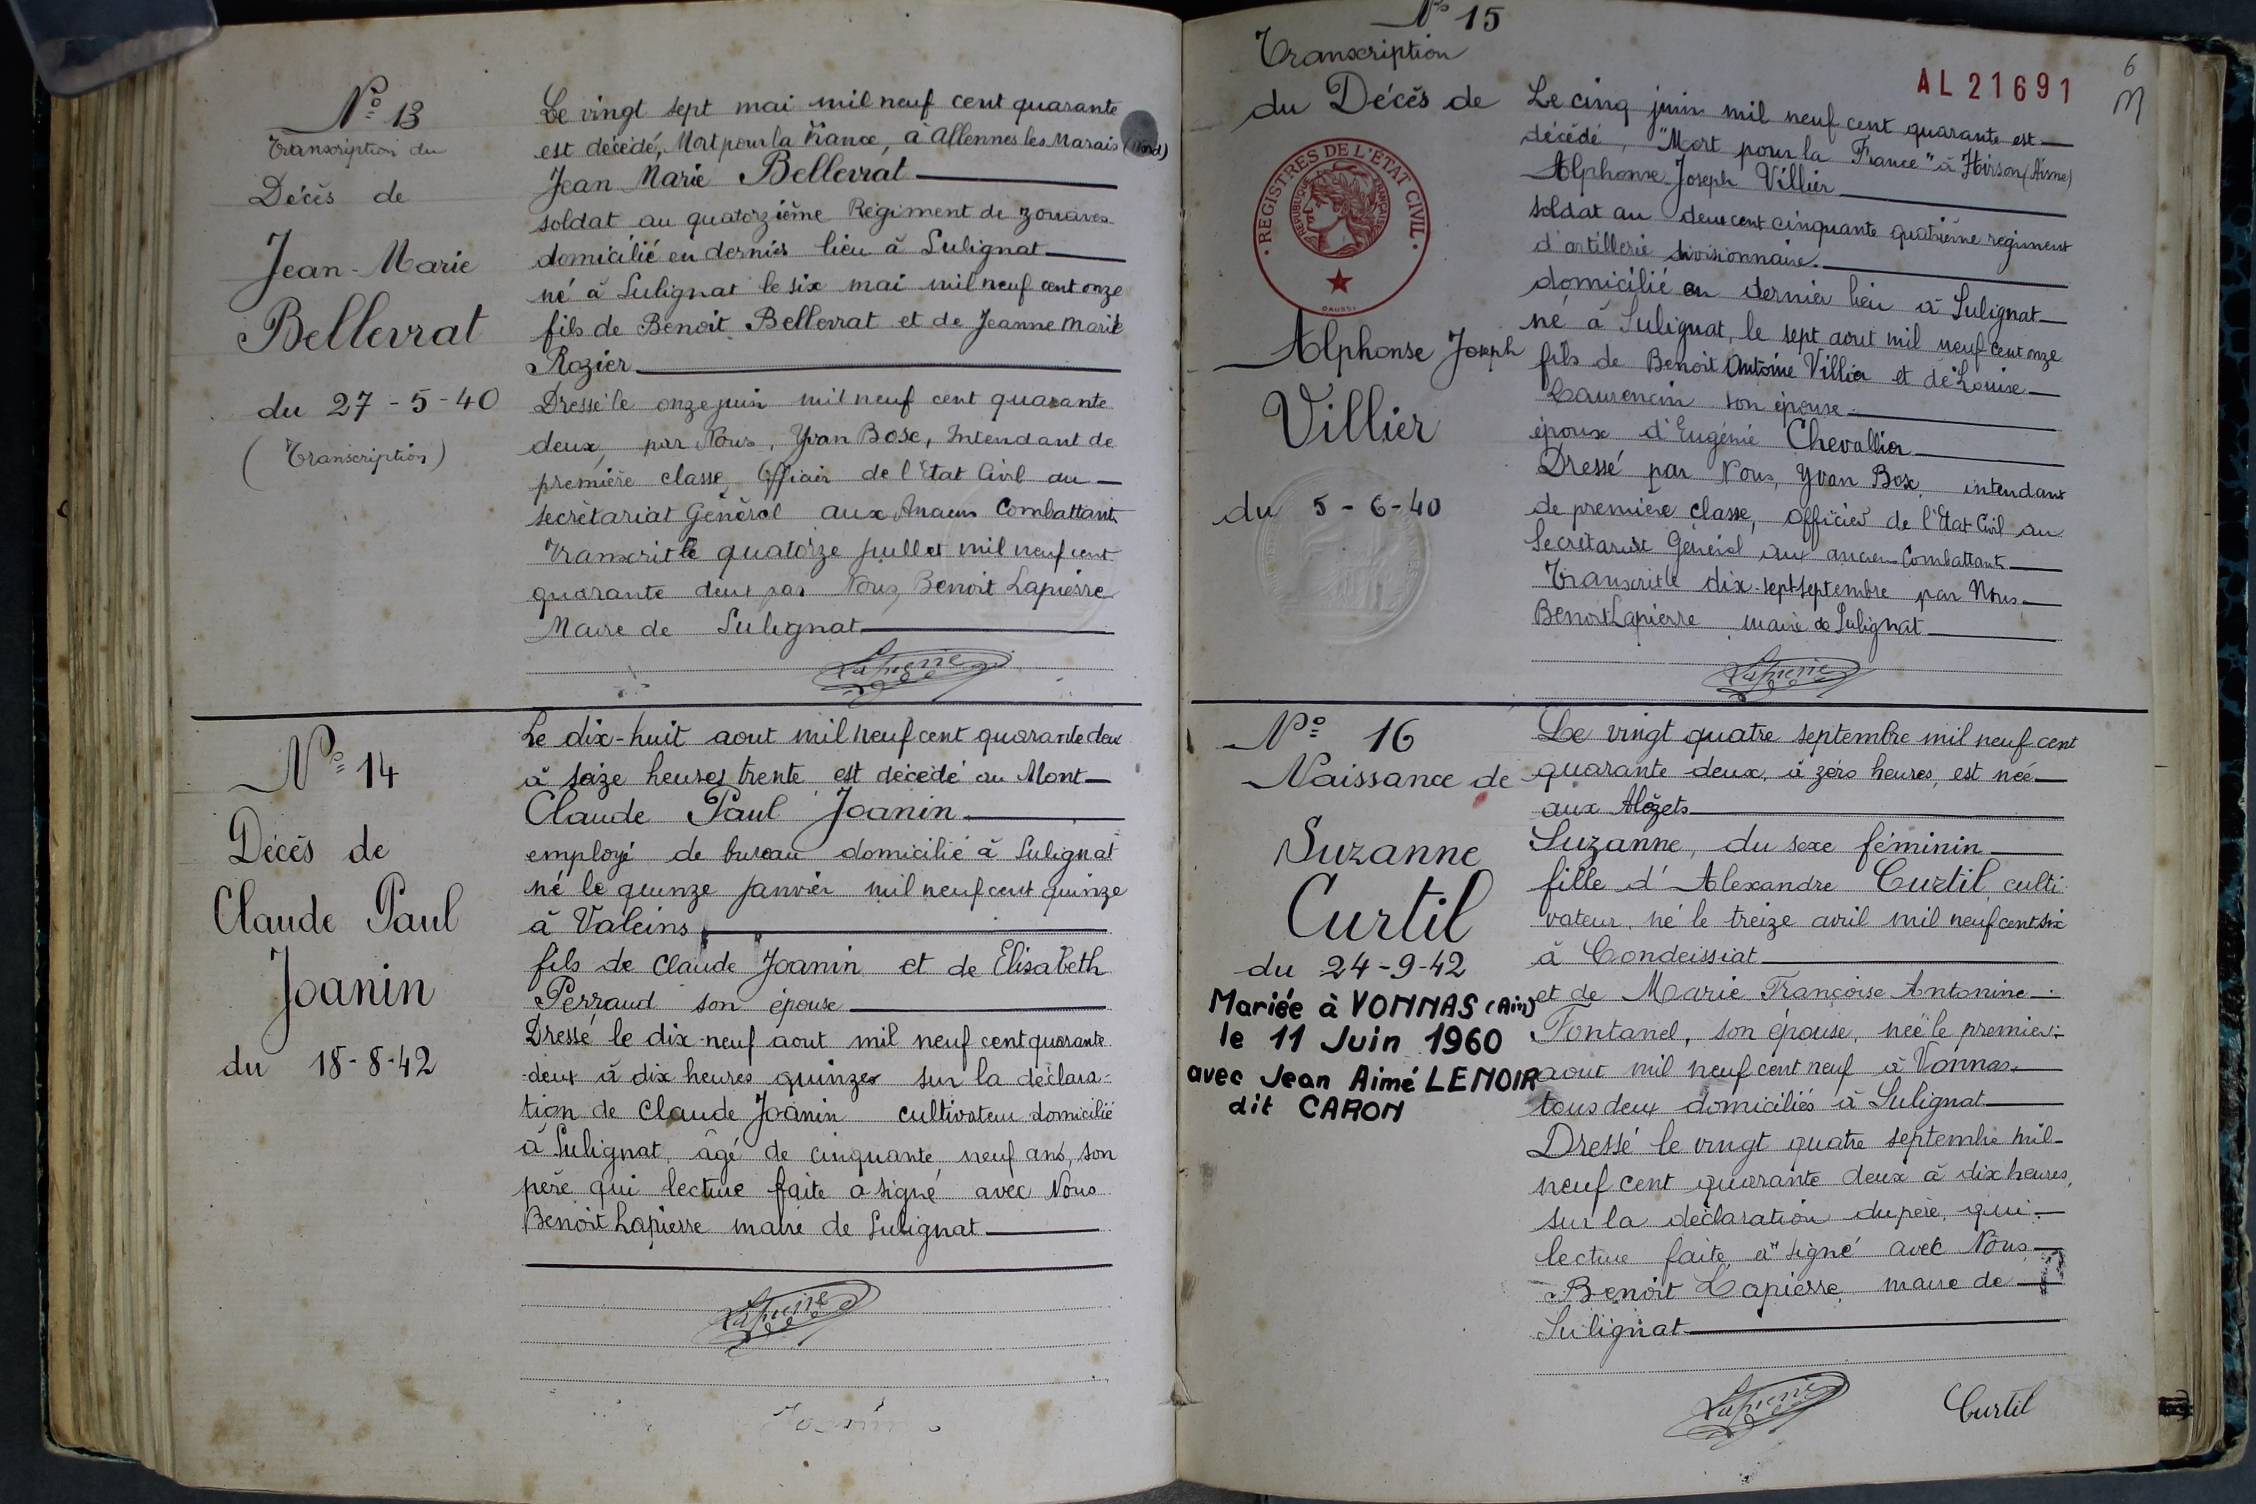 Nº 13
Transcription du
Décès de
Jean-Marie
Bellevrat
du 27-5-40
(Transcription)
Le vingt sept mai mil neuf cent quarante
est décédé, Mort pour la France, à Allennes les Marais (Nord)
Jean Marie Bellevrat
soldat au quatorzième Régiment de zouaves
domicilié en dernier lieu à Sulignat
né à Sulignat le six mai mil neuf cent onze
fils de Benoit Bellevrat et de Jeanne Marie
Rozier
Dressé le onze juin mil neuf cent quarante
deux, par Nous, Yvan Bose, Intendant de
première classe, Officier de l'Etat Civil au
secrétariat Général aux Anciens Combattants
Transcrit le quatorze juillet mil neuf cent
quarante deux par Nous, Benoit Lapierre
Maire de Sulignat
Lapierre
Nº 14
Décès de
Claude Paul
Joanin
du 18-8-42
Le dix-huit aout mil neuf cent quarante deux
à seize heures trente est décédé au Mont
Claude Paul Joanin
employé de bureau domicilié à Sulignat
né le quinze janvier mil neuf cent quinze
à Valeins
fils de Claude Joanin et de Elisabeth
Perraud son épouse
Dressé le dix-neuf aout mil neuf cent quarante
deux à dix heures quinze sur la déclara-
tion de Claude Joanin cultivateur domicilié
à Sulignat, âgé de cinquante neuf ans, son
père qui lecture faite a signé avec Nous
Benoit Lapierre maire de Sulignat
Lapierre
Joanin
Nº 15
Transcription
du Décès de
REGISTRES DE L'ETAT CIVIL
REPUBLIQUE FRANÇAISE
DAUSSY
Alphonse Joseph
Villier
du 5-6-40
AL 21691
6
M
Le cinq juin mil neuf cent quarante est
décédé, "Mort pour la France" à Hirson (Aisne)
Alphonse Joseph Villier
soldat au deux cent cinquante quatrième regiment
d'artillerie divisionnaire.
domicilié en dernier lieu à Sulignat
né à Sulignat, le sept aout mil neuf cent onze
fils de Benoit Antoine Villier et de Louise
Laurencin son épouse
époux d'Eugénie Chevallier
Dressé par Nous, Yvan Bose, intendant
de première classe, officier de l'Etat Civil au
Secrétariat Général aux anciens Combattants
Transcrit le dix-sept septembre par Nous
Benoit Lapierre maire de Sulignat
Lapierre
Nº 16
Naissance de
Suzanne
Curtil
du 24-9-42
Mariée à VONNAS (Ain)
le 11 Juin 1960
avec Jean Aimé LENOIR
dit CARON
Le vingt quatre septembre mil neuf cent
quarante deux, à zéro heures, est née
aux Alózets
Suzanne, du sexe féminin
fille d'Alexandre Curtil culti
vateur, né le treize avril mil neuf cent six
à Condeissiat
et de Marie Françoise Antonine
Fontanel, son épouse, née le premier
aout mil neuf cent neuf à Vonnas
tous deux domiciliés à Sulignat
Dressé le vingt quatre septembre mil
neuf cent quarante deux à dix heures,
sur la déclaration du père, qui
lecture faite a signé avec Nous
Benoit Lapierre, maire de
Sulignat
Lapierre
Curtil